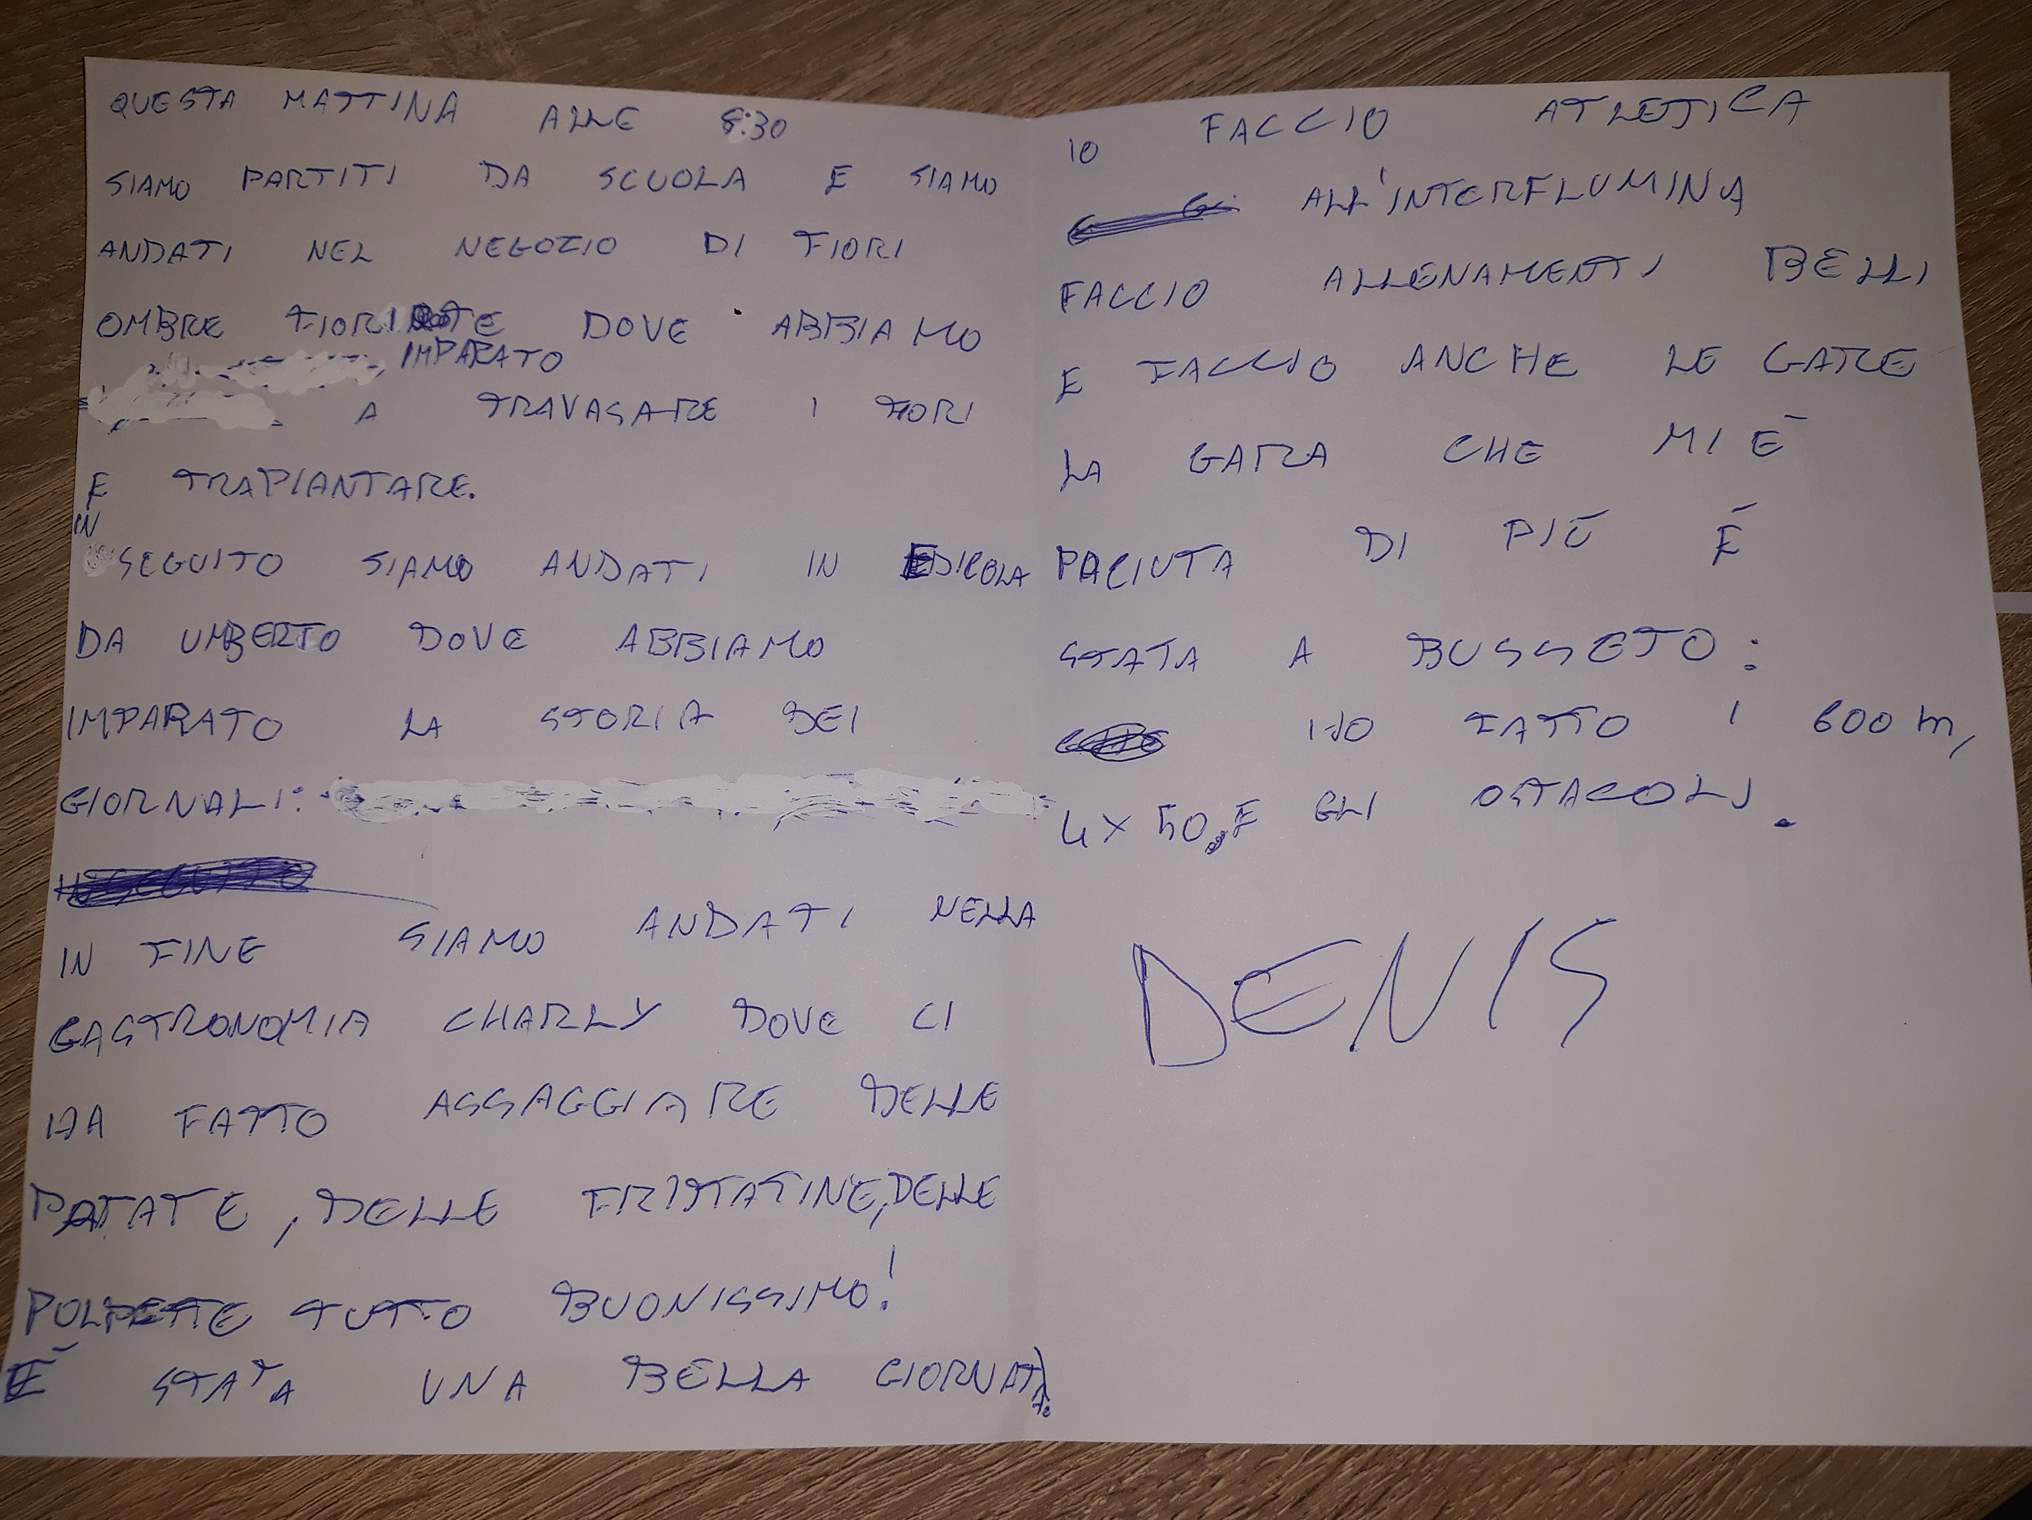 QUESTA MATTINA ALLE 8:30
SIAMO PARTITI DA SCUOLA E SIAMO
ANDATI NEL NEGOZIO DI FIORI
OMBRE FIORITE DOVE ABBIAMO
IMPARATO
A TRAVASARE I FIORI
E TRAPIANTARE.
IN
SEGUITO SIAMO ANDATI IN EDICOLA
DA UMBERTO DOVE ABBIAMO
IMPARATO LA STORIA DEI
GIORNALI:
IN FINE SIAMO ANDATI NELLA
GASTRONOMIA CHARLY DOVE CI
HA FATTO ASSAGGIARE DELLE
PATATE, DELLE FRITTATINE, DELLE
POLPETTE TUTTO BUONISSIMO!
È STATA UNA BELLA GIORNATA
IO FACCIO ATLETICA
ALL'INTERFLUMINA
FACCIO ALLENAMENTI BELLI
E FACCIO ANCHE LE GARE
LA GARA CHE MI È
PACIUTA DI PIÙ È
STATA A BUSSETO:
HO FATTO I 600 m,
4X50, E GLI OSTACOLI.
DENIS